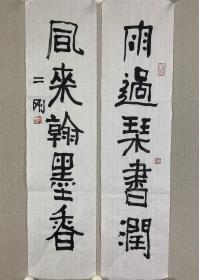 雨過琴書潤
風來翰墨香
二剛